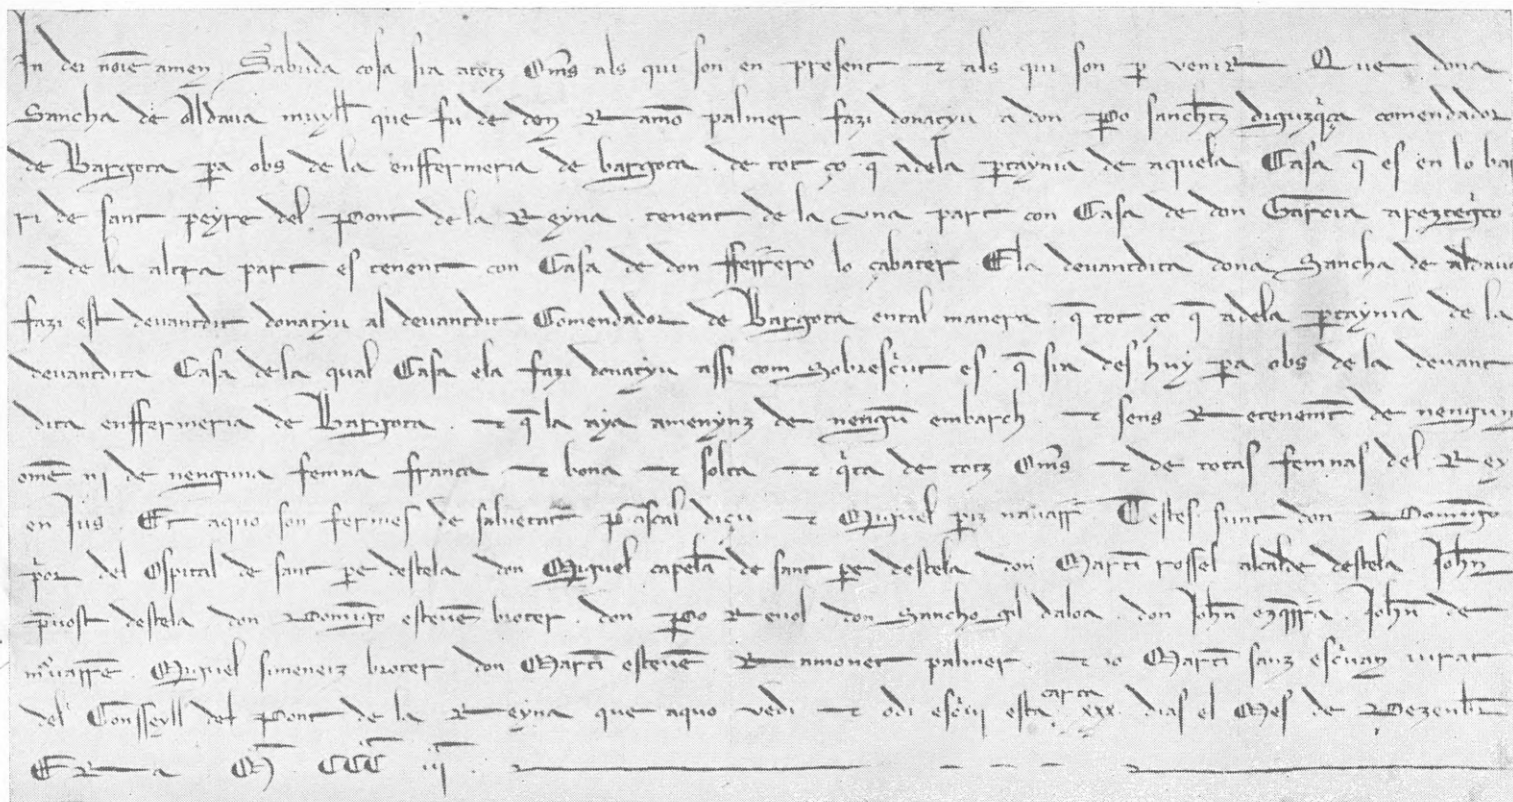 In dei nōīe amen Sabuda cosa sia atotz Om̄s als qui son en present ⁊ als qui son ꝑ venir. Que dona
Sancha de Aldaua muyll̄ que fu de don Ramō palmer fazi donatyu a don pero sanch̄tz comendador
de Bargota ꝑa obs de la enffermeria de bargota. de tot ço q̄ adela ꝑtaynia de aquela Casa q̄ es en lo bar
ri de sant peyre del Pont de la Reyna. tenent de la una part con Casa de don Garcia
⁊ de la altra part es tenent con Casa de don fferrero lo çabater Ela deuantdita dona Sancha de aldaua
fazi est deuantdit donatyu al deuantdit Comendador de Bargota ental manera. q̄ tot ço q̄ adela ꝑtaynia de la
deuantdita Casa de la qual Casa ela fazi donatyu assi com Sobrescⁱut es. q̄ sia des huy ꝑa obs de la deuant
dita enffermeria de Bargota. ⁊ q̄ la aya amenynz de nengū embarch. ⁊ sens Retenem̄t de nengun
omē ni de nenguna femna franca ⁊ bona ⁊ solta ⁊ qⁱta de totz Om̄s ⁊ de totas femnas del Rey
en Jus. Et aquo son fermes de saluetat ꝑascal ⁊ Miguel ꝑiz nauarr̄. Testes sunt don Domīgo
pⁱor del Ospital de sant ꝑe destela. don Miguel capelā de sant ꝑe destela don Martī rossel alcalde destela. Joh̄n
p̄uost destela don Domīgo esteuē broter. don ꝑo Reuol. don Sancho gil daloa. don Joh̄n ezq̄rra. Joh̄n de
Miguel simeneiz broter don Martī esteuē. Ramonet palmer. ⁊ io Martī sanz escⁱuan iurat
del Consseyll del Pont de la Reyna que aquo vedi ⁊ odi escⁱui esta carta xxx. dias el Mes de Dezenbr̄
ERa M̄ CCC iij.